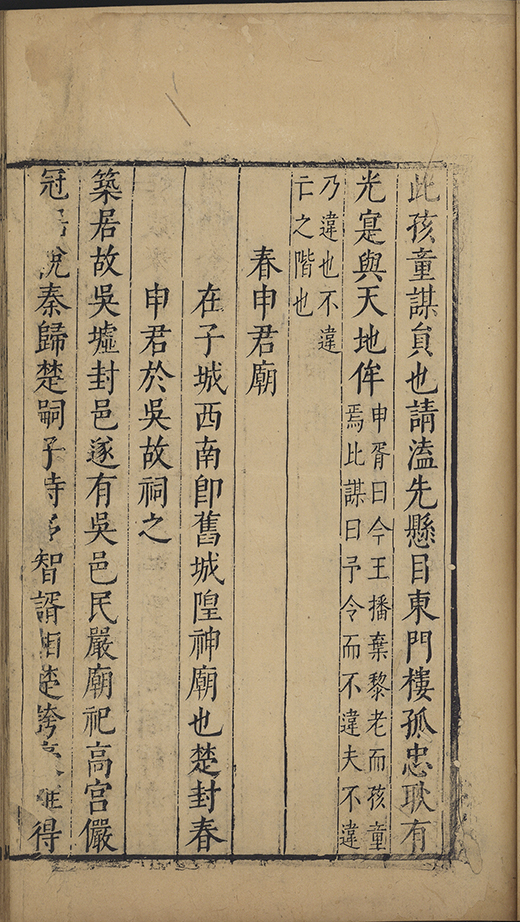 此孩童謀貟也請溘先懸目東門樓孤忠耿有
光寔與天地侔申胥曰今王播棄黎老而孩童
焉比謀曰予令而不違夫不違
乃違也不違
亡之階也
春申君廟
在子城西南即舊城隍神廟也楚封春
申君於吳故祠之
築居故吳墟封邑遂有吳邑民嚴廟祀高宮儼
冠說秦歸楚嗣子恃智諝相楚誇得